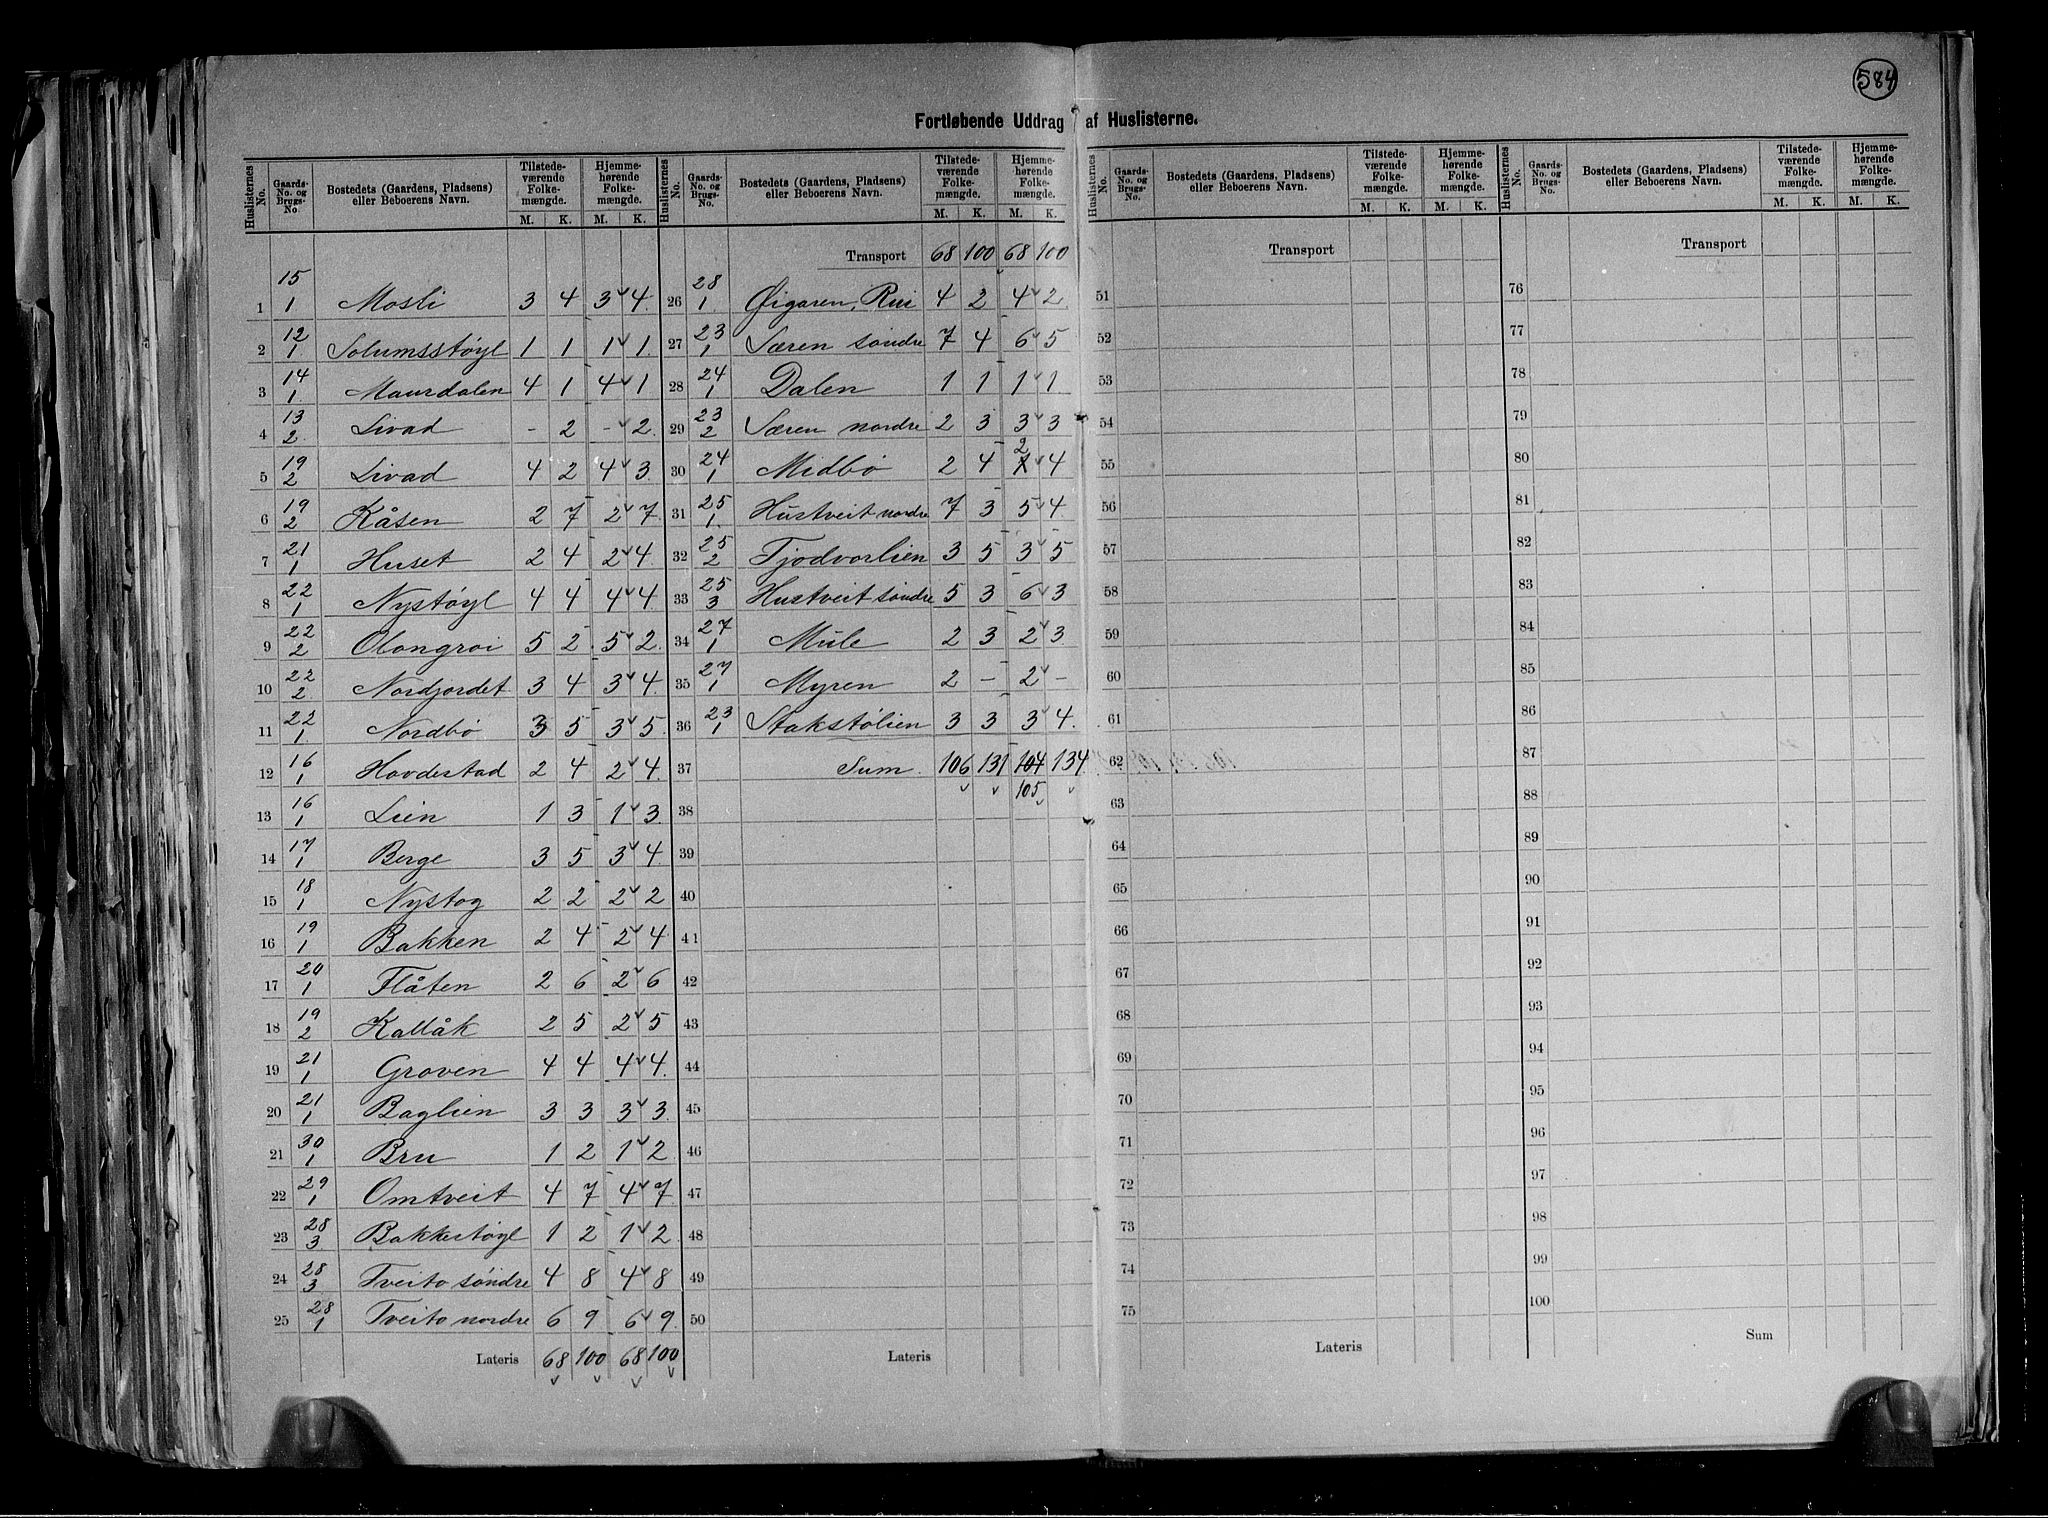 584
Fortløbende Uddrag af Huslisterne.
Huslisternes No. | Gaards-No. og Brugs-No. | Bostedets (Gaardens, Pladsens) eller Beboerens Navn. | Tilstedeværende Folkemængde. M. K. | Hjemmehørende Folkemængde. M. K.
1 | 15/1 | Mosli | 3 | 4 | 3 | 4
2 | 12/1 | Solumsstøyl | 1 | 1 | 1 | 1
3 | 14/1 | Maurdalen | 4 | 1 | 4 | 1
4 | 13/2 | Livad | - | 2 | - | 2
5 | 19/2 | Livad | 4 | 2 | 4 | 3
6 | 19/2 | Kåsen | 2 | 7 | 2 | 7
7 | 21/1 | Huset | 2 | 4 | 2 | 4
8 | 22/1 | Nystøyl | 4 | 4 | 4 | 4
9 | 22/2 | Olongroi | 5 | 2 | 5 | 2
10 | 22/2 | Nordjordet | 3 | 4 | 3 | 4
11 | 22/1 | Nordbø | 3 | 5 | 3 | 5
12 | 16/1 | Hovdestad | 2 | 4 | 2 | 4
13 | 16/1 | Lien | 1 | 3 | 1 | 3
14 | 17/1 | Berge | 3 | 5 | 3 | 4
15 | 18/1 | Nystog | 2 | 2 | 2 | 2
16 | 19/1 | Bakken | 2 | 4 | 2 | 4
17 | 20/1 | Flåten | 2 | 6 | 2 | 6
18 | 19/2 | Kallåk | 2 | 5 | 2 | 5
19 | 21/1 | Groven | 4 | 4 | 4 | 4
20 | 21/1 | Baglien | 3 | 3 | 3 | 3
21 | 30/1 | Bru | 1 | 2 | 1 | 2
22 | 29/1 | Omtveit | 4 | 7 | 4 | 7
23 | 28/3 | Bakkestøyl | 1 | 2 | 1 | 2
24 | 28/3 | Tveito søndre | 4 | 8 | 4 | 8
25 | 28/1 | Tveito nordre | 6 | 9 | 6 | 9
Lateris | 68 | 100 | 68 | 100
Huslisternes No. | Gaards-No. og Brugs-No. | Bostedets (Gaardens, Pladsens) eller Beboerens Navn. | Tilstedeværende Folkemængde. M. K. | Hjemmehørende Folkemængde. M. K.
Transport | 68 | 100 | 68 | 100
26 | 28/1 | Øigaren, Rui | 4 | 2 | 4 | 2
27 | 23/1 | Særen søndre | 7 | 4 | 6 | 5
28 | 24/1 | Dalen | 1 | 1 | 1 | 1
29 | 23/2 | Særen nordre | 2 | 3 | 3 | 3
30 | 24/1 | Midbø | 2 | 4 | 2 | 4
31 | 25/1 | Hustveit nordre | 7 | 3 | 5 | 4
32 | 25/2 | Tjodvorlien | 3 | 5 | 3 | 5
33 | 25/3 | Hustveit søndre | 5 | 3 | 6 | 3
34 | 27/1 | Mule | 2 | 3 | 2 | 3
35 | 27/1 | Myren | 2 | - | 2 | -
36 | 23/1 | Stakstølien | 3 | 3 | 3 | 4
37 | Sum | 106 | 131 | 104 | 134
38 | 105
39
40
41
42
43
44
45
46
47
48
49
50
Lateris
Huslisternes No. | Gaards-No. og Brugs-No. | Bostedets (Gaardens, Pladsens) eller Beboerens Navn. | Tilstedeværende Folkemængde. M. K. | Hjemmehørende Folkemængde. M. K.
Transport
51
52
53
54
55
56
57
58
59
60
61
62
63
64
65
66
67
68
69
70
71
72
73
74
75
Lateris
Huslisternes No. | Gaards-No. og Brugs-No. | Bostedets (Gaardens, Pladsens) eller Beboerens Navn. | Tilstedeværende Folkemængde. M. K. | Hjemmehørende Folkemængde. M. K.
Transport
76
77
78
79
80
81
82
83
84
85
86
87
88
89
90
91
92
93
94
95
96
97
98
99
100
Sum